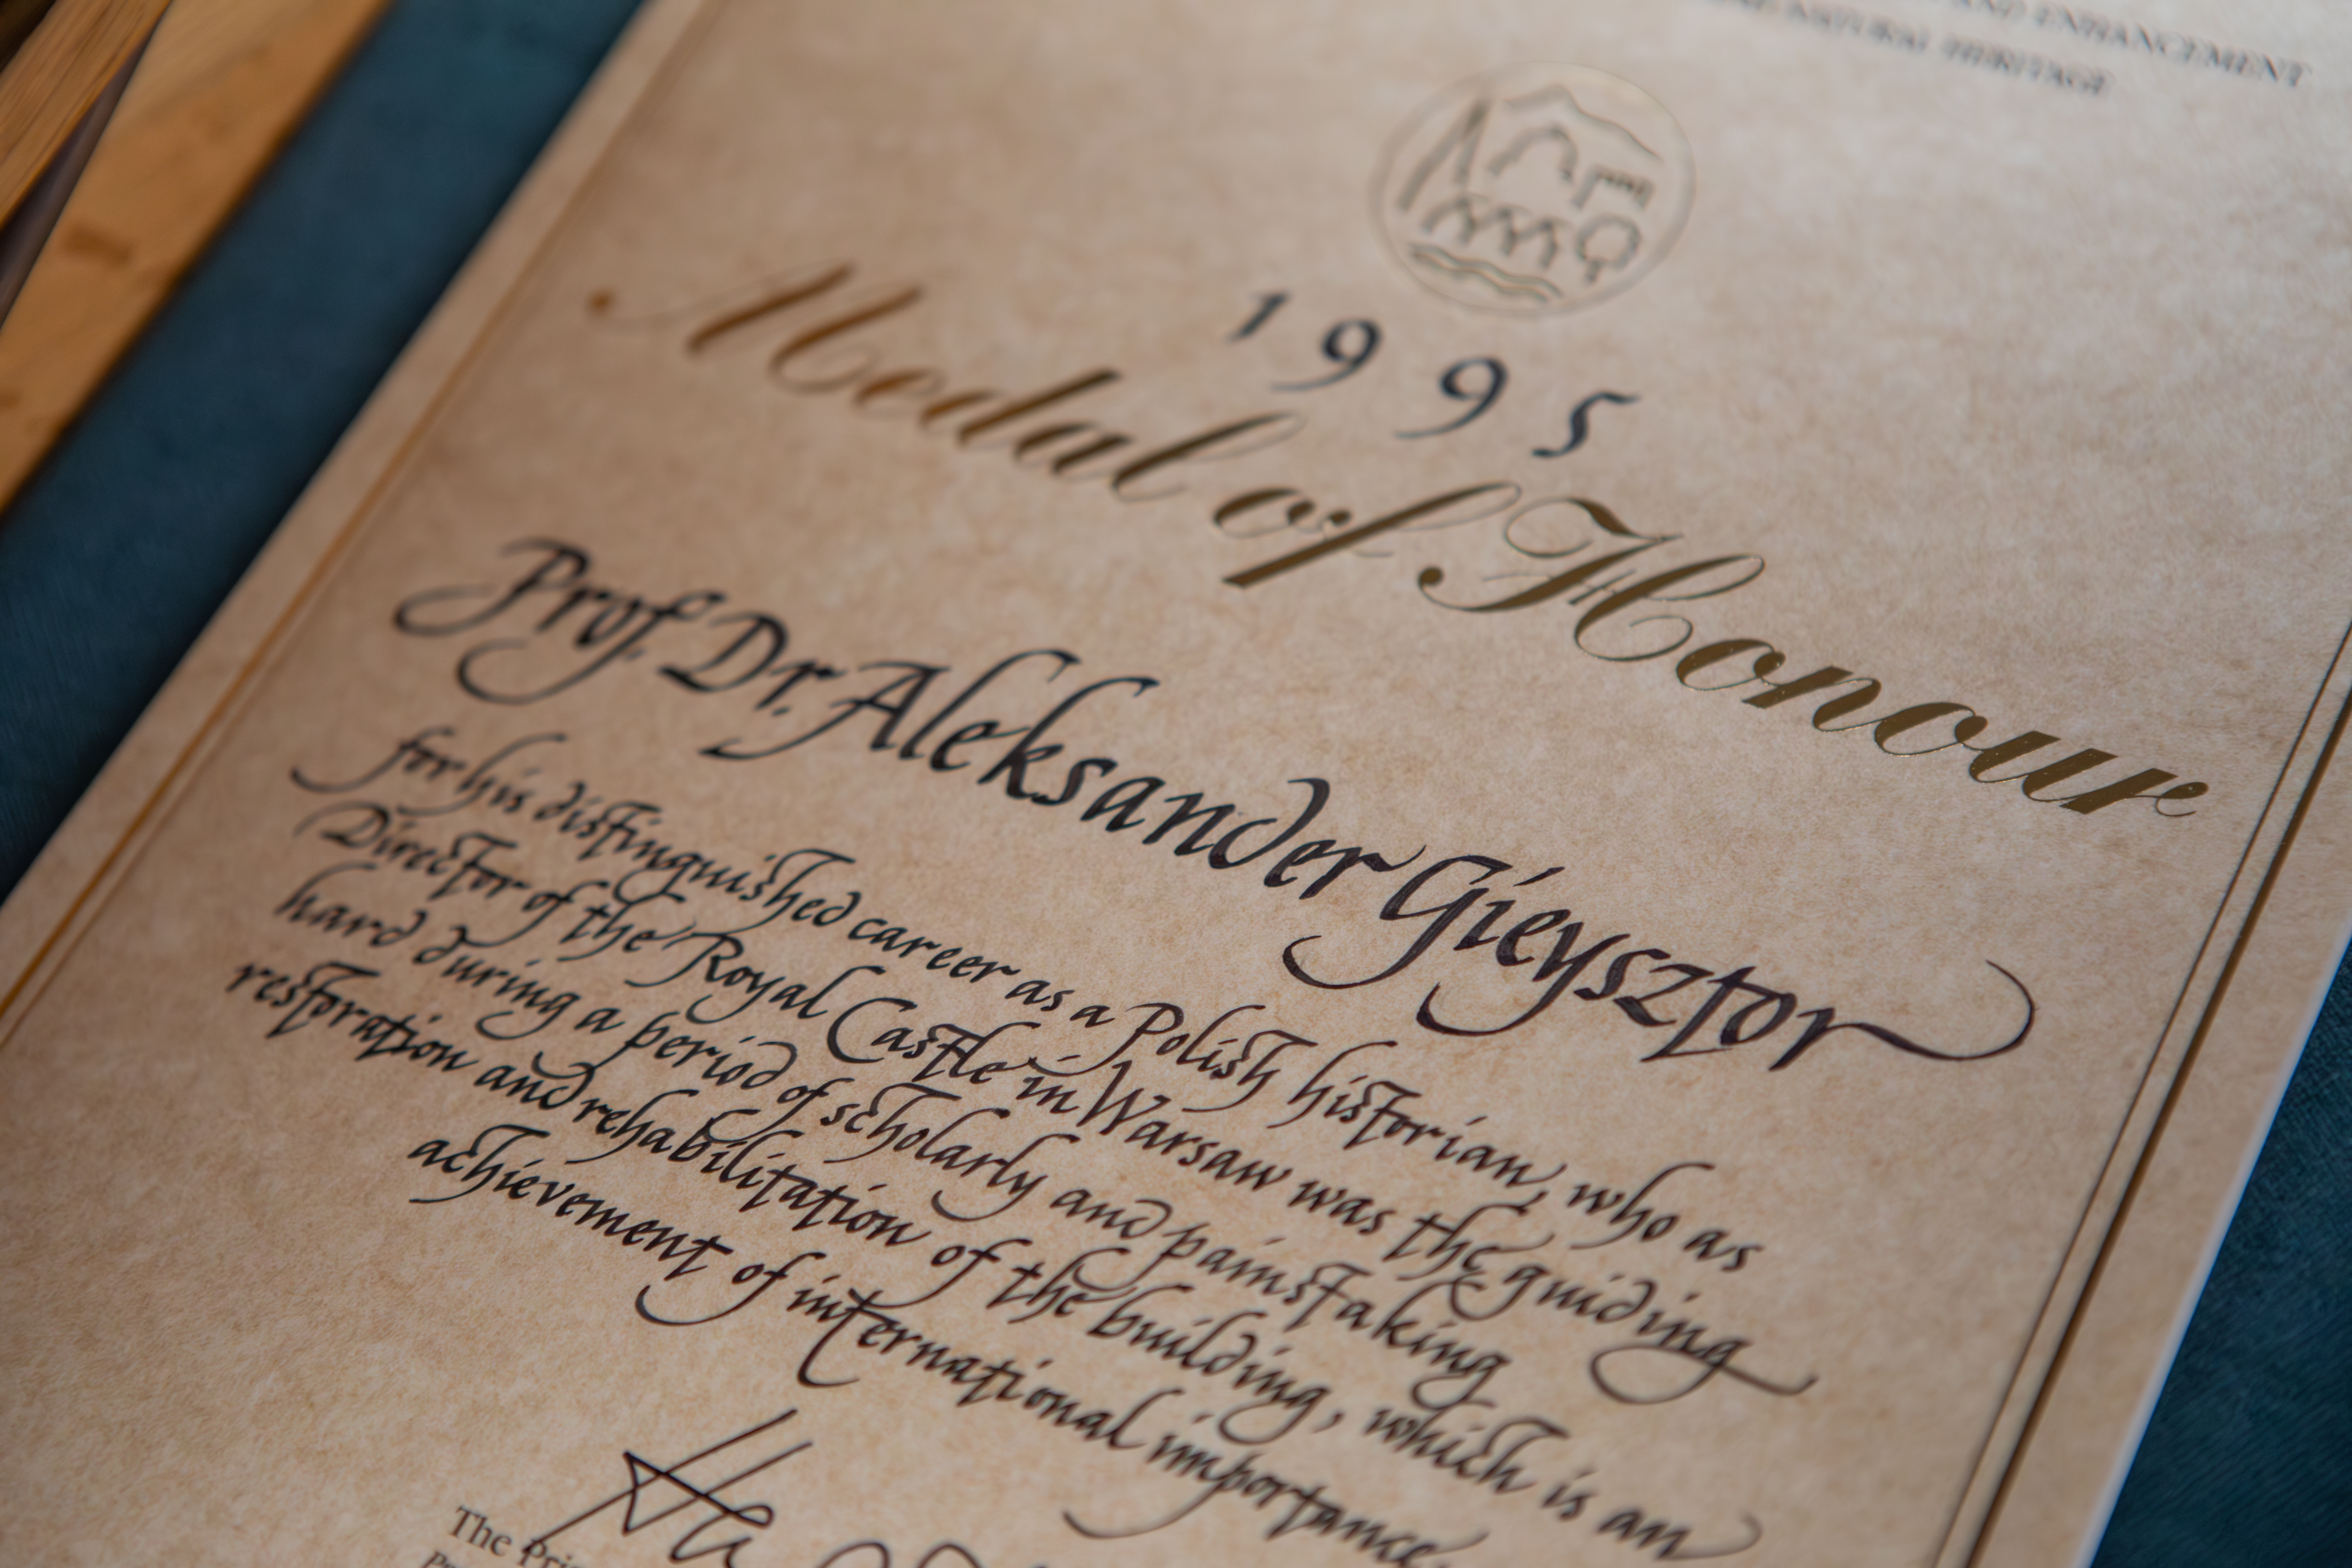 AND ENHANCEMENT
NATURAL HERITAGE
1995
Medal of Honour
Prof. Dr. Aleksander Gieysztor
for his distinguished career as a Polish historian, who as
Director of the Royal Castle in Warsaw was the guiding
hand during a period of scholarly and painstaking
restoration and rehabilitation of the building, which is an
achievement of international importance.
The